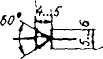 60°
4...5
5...6